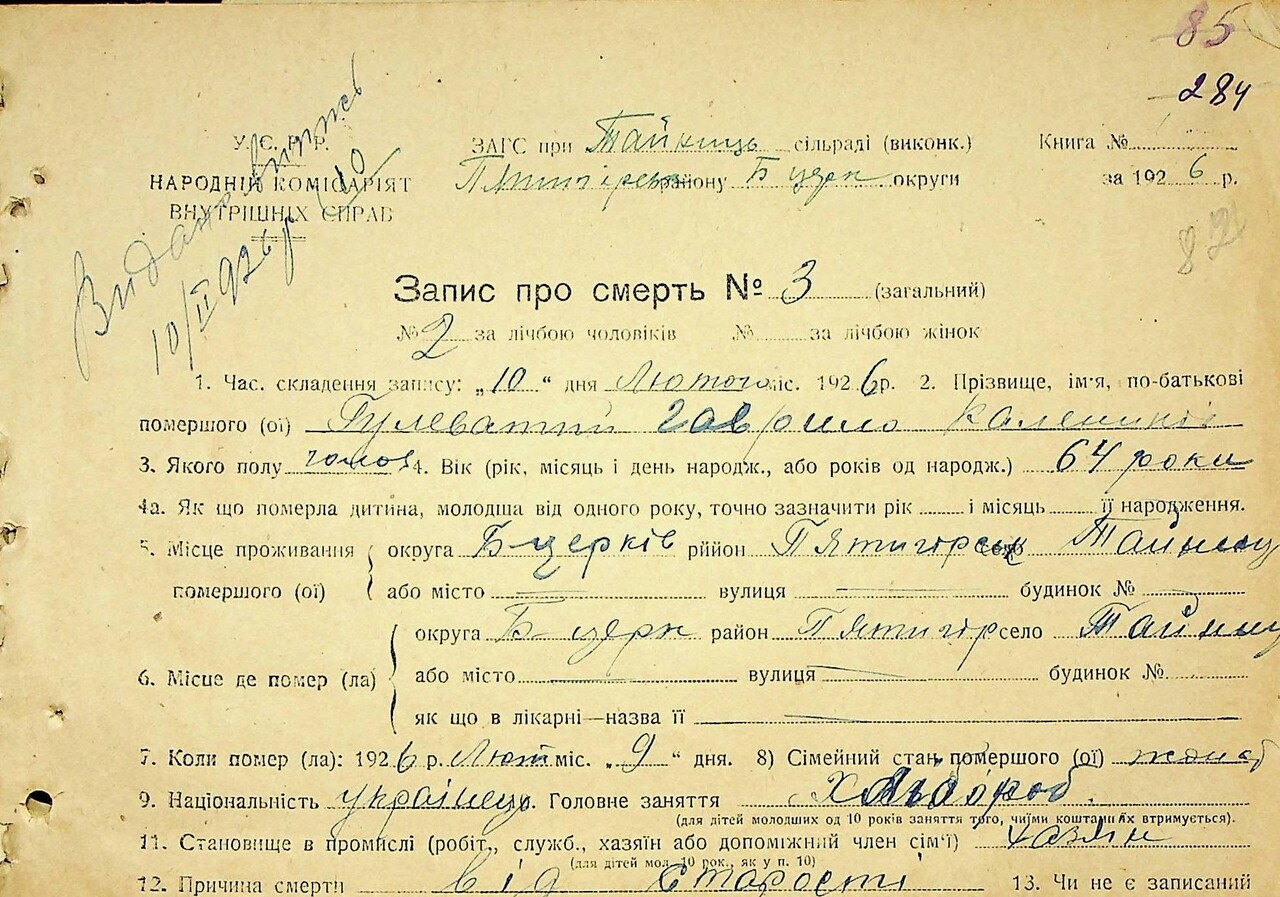 85
284
У. С. Р. Р. ЗАГС при Тайниць сільраді (виконк.) Книга №
НАРОДНІЙ КОМІСАРІЯТ Пятигірськ району Б церк округи за 1926 р.
ВНУТРІШНІХ СПРАВ
Видано випись
10/II 926 р
Запис про смерть № 3 (загальний)
№ 2 за лічбою чоловіків № за лічбою жінок
1. Час складення запису: „10“ дня Лютого міс. 1926 р. 2. Прізвище, ім'я, по-батькові
помершого (ої) Гулеватий Гаврило Калеників
3. Якого полу чолов 4. Вік (рік, місяць і день народж., або років од народж.) 64 роки
4а. Як що померла дитина, молодша від одного року, точно зазначити рік і місяць її народження.
5. Місце проживання округа Б-церків рйіон Пятигірськ село Тайниц
помершого (ої) або місто вулиця будинок №
округа Б-церк район Пятигір село Тайниц
6. Місце де помер (ла) або місто вулиця будинок №
як що в лікарні—назва її
7. Коли помер (ла): 1926 р. Лют міс. „9“ дня. 8) Сімейний стан помершого (ої) жонат
9. Національність українець. Головне заняття Хлібороб.
(для дітей молодших од 10 років заняття того, чиїми коштами їх втримується).
11. Становище в промислі (робіт., служб., хазяїн або допоміжний член сім'ї) хазяїн
(для дітей мол. 10 рок., як у п. 10)
12. Причина смерти від старости 13. Чи не є записаний